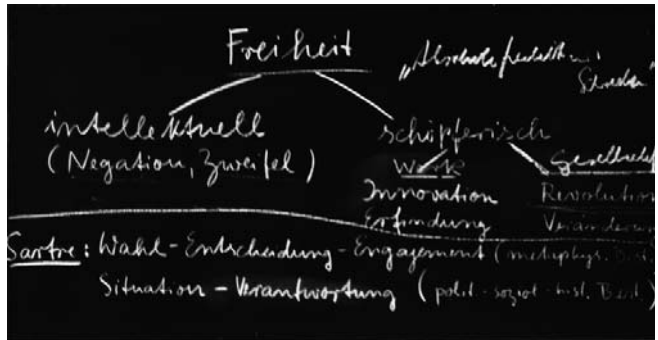 Freiheit
"Absolute
intellektuell
(Negation, Zweifel)
schöpferisch
Werke
Innovation
Erfindung
Gesellschaft
Revolution
Veränderun
Sartre: Wahl - Entscheidung - Engagement (metaphys. Best.
Situation - Verantwortung (polit.-sozial-hist. Best.